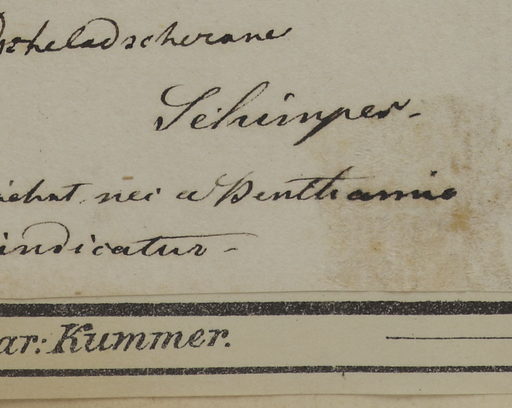 Dscheladscherane
Schimper.
nec a Benthamio
indicatur.
ar: Kummer.